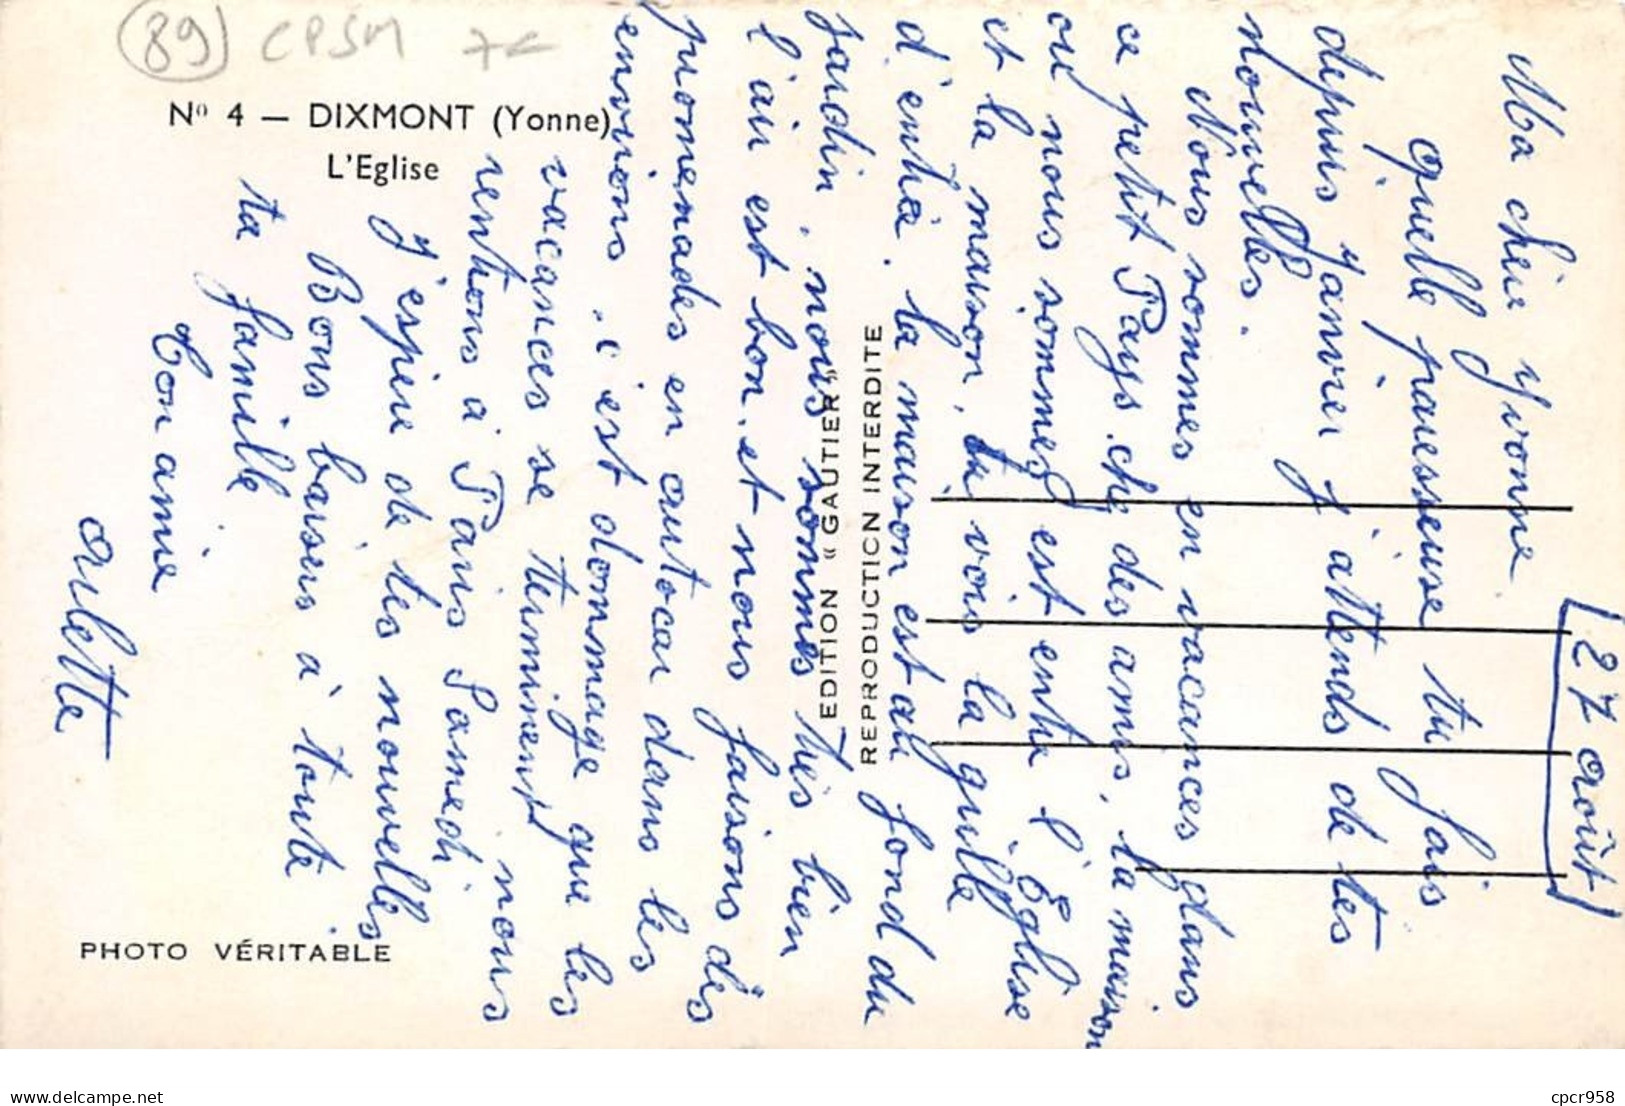 (89) CPSM
N° 4 — DIXMONT (Yonne)
L'Eglise
EDITION « GAUTIER »
REPRODUCTION INTERDITE
PHOTO VÉRITABLE
27 août
Ma chère Yvonne
quelle paresseuse tu fais
depuis Janvier j'attends de tes
nouvelles.
Nous sommes en vacances dans
ce petit Pays. chez des amis, la maison
ou nous sommes est entre l'Eglise
et la maison, tu vois la grille
d'entrée. la maison est au fond du
jardin. nous sommes très bien
l'air est bon. et nous faisons des
promenades en autocar dans les
environs. c'est dommage que les
vacances se terminent nous
rentrons à Paris Samedi
J'espère de tes nouvelles
Bons baisers à toute
ta famille
Ton amie
Arlette
delcampe.net
cpcr958